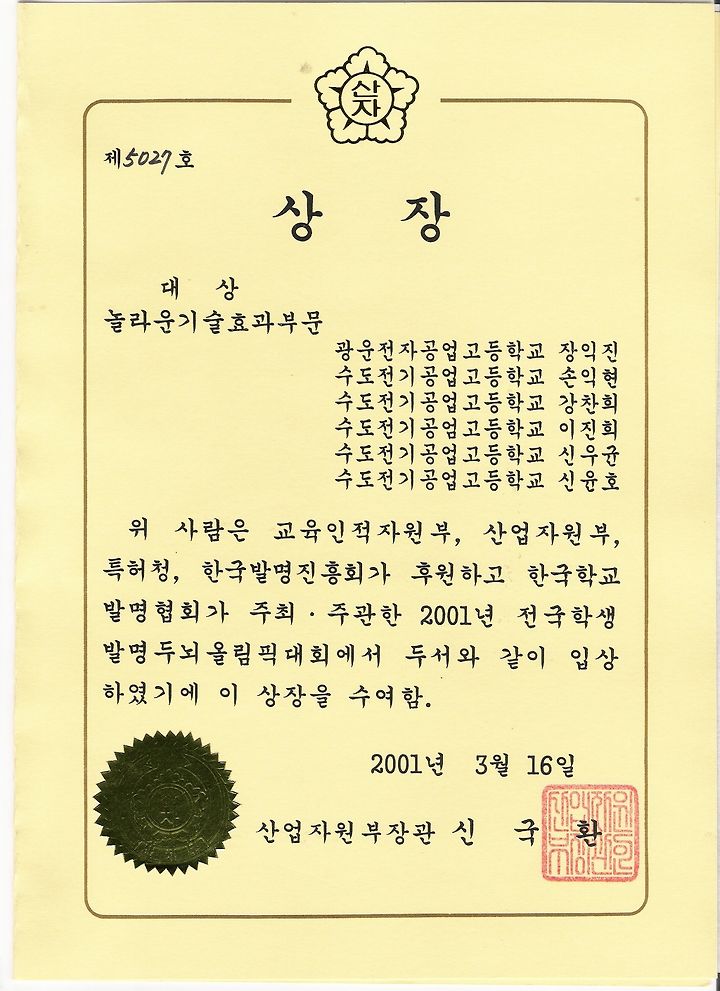 산
자
제5027호
상 장
대 상
놀라운기술효과부문
광운전자공업고등학교 장익진
수도전기공업고등학교 손익현
수도전기공업고등학교 강찬희
수도전기공업고등학교 이진희
수도전기공업고등학교 신우균
수도전기공업고등학교 신윤호
위 사람은 교육인적자원부, 산업자원부,
특허청, 한국발명진흥회가 후원하고 한국학교
발명협회가 주최 · 주관한 2001년 전국학생
발명두뇌올림픽대회에서 두서와 같이 입상
하였기에 이 상장을 수여함.
2001년 3월 16일
산업자원부장관 신 국 환